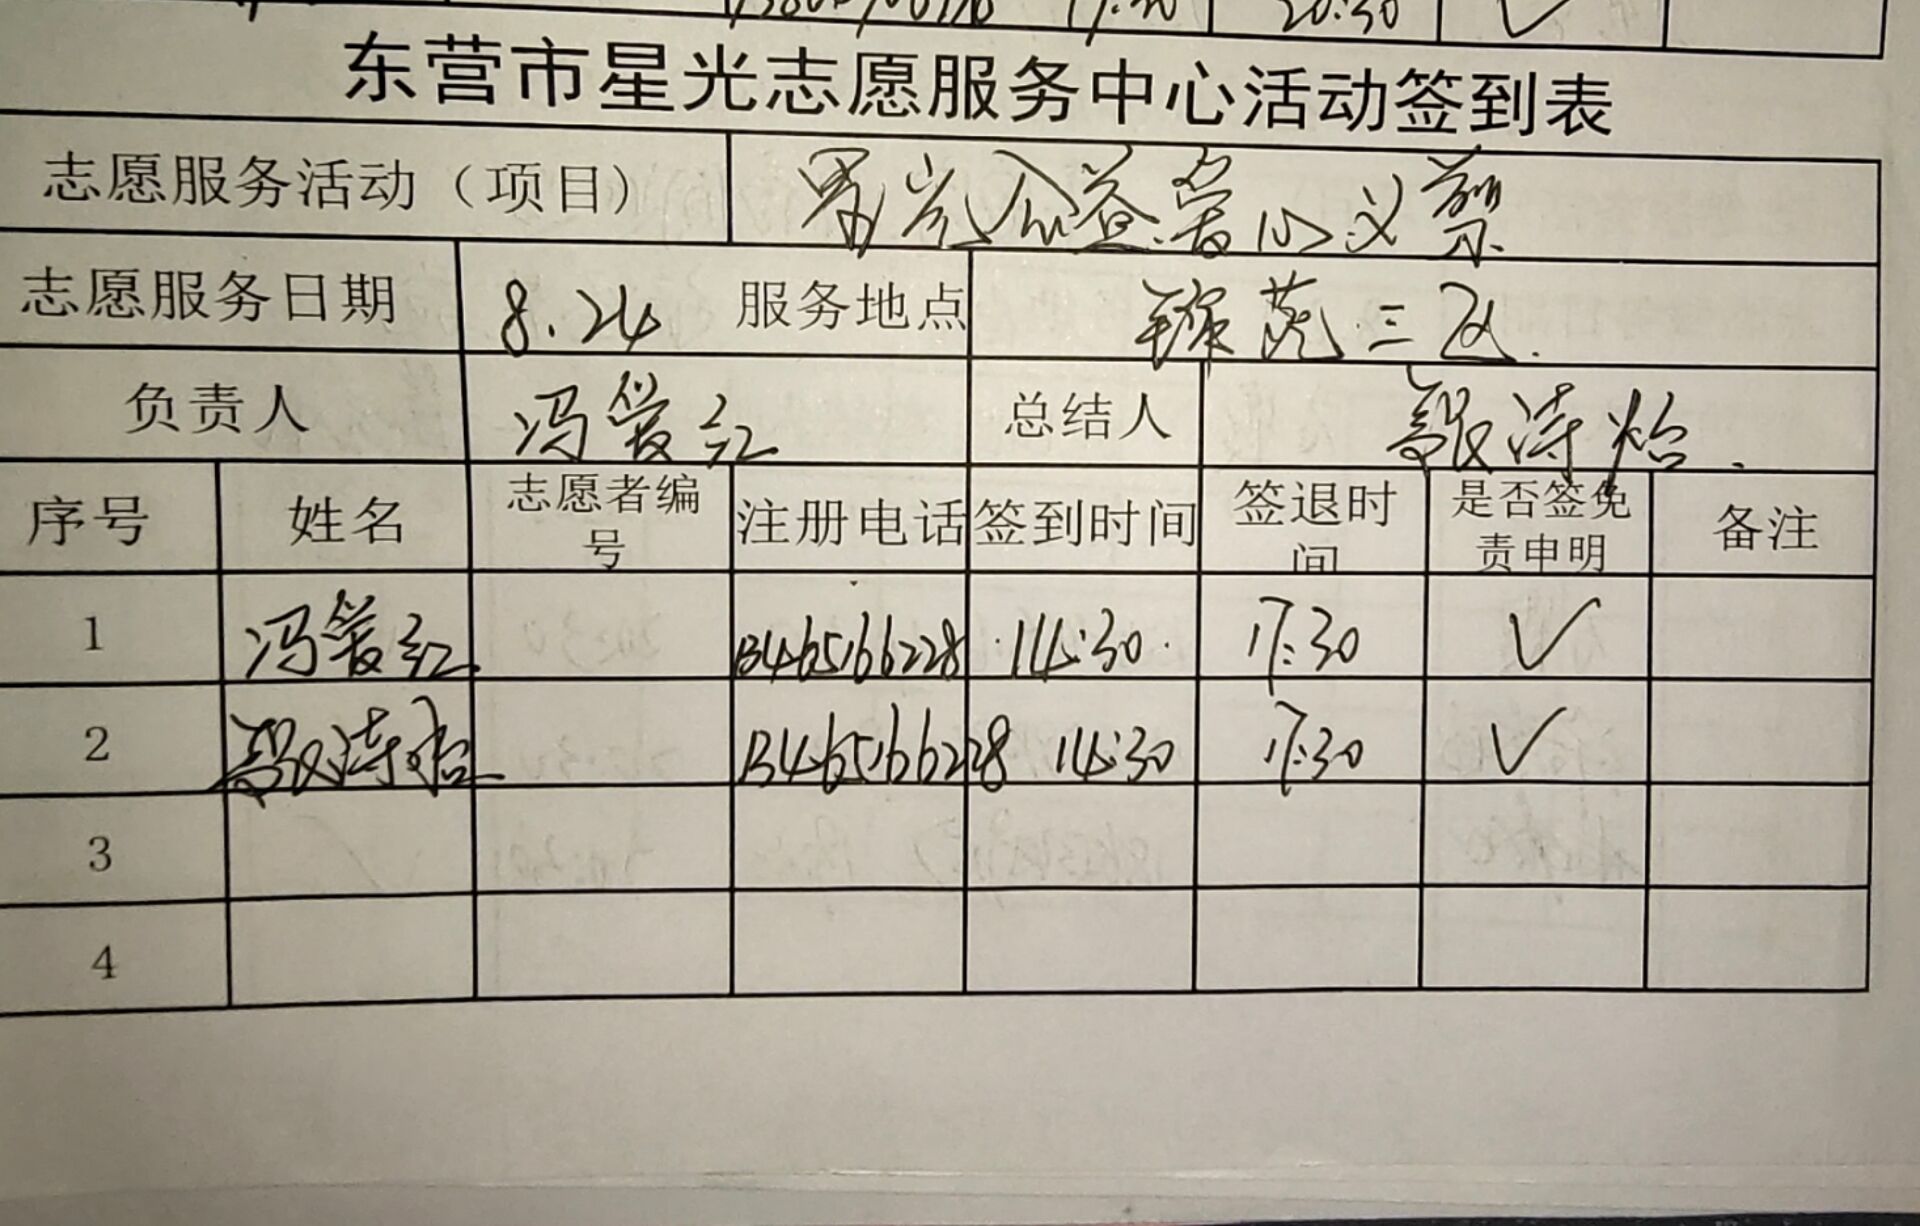 20:30
东营市星光志愿服务中心活动签到表
志愿服务活动（项目） 公益爱心义剪
志愿服务日期 8.24 服务地点 三区.
负责人 冯爱红 总结人 诗怡.
序号 姓名 志愿者编号 注册电话 签到时间 签退时间 是否签免责申明 备注
1 冯爱红 13465166228 14:30 17:30 √
2 诗怡 13465166228 14:30 17:30 √
3
4